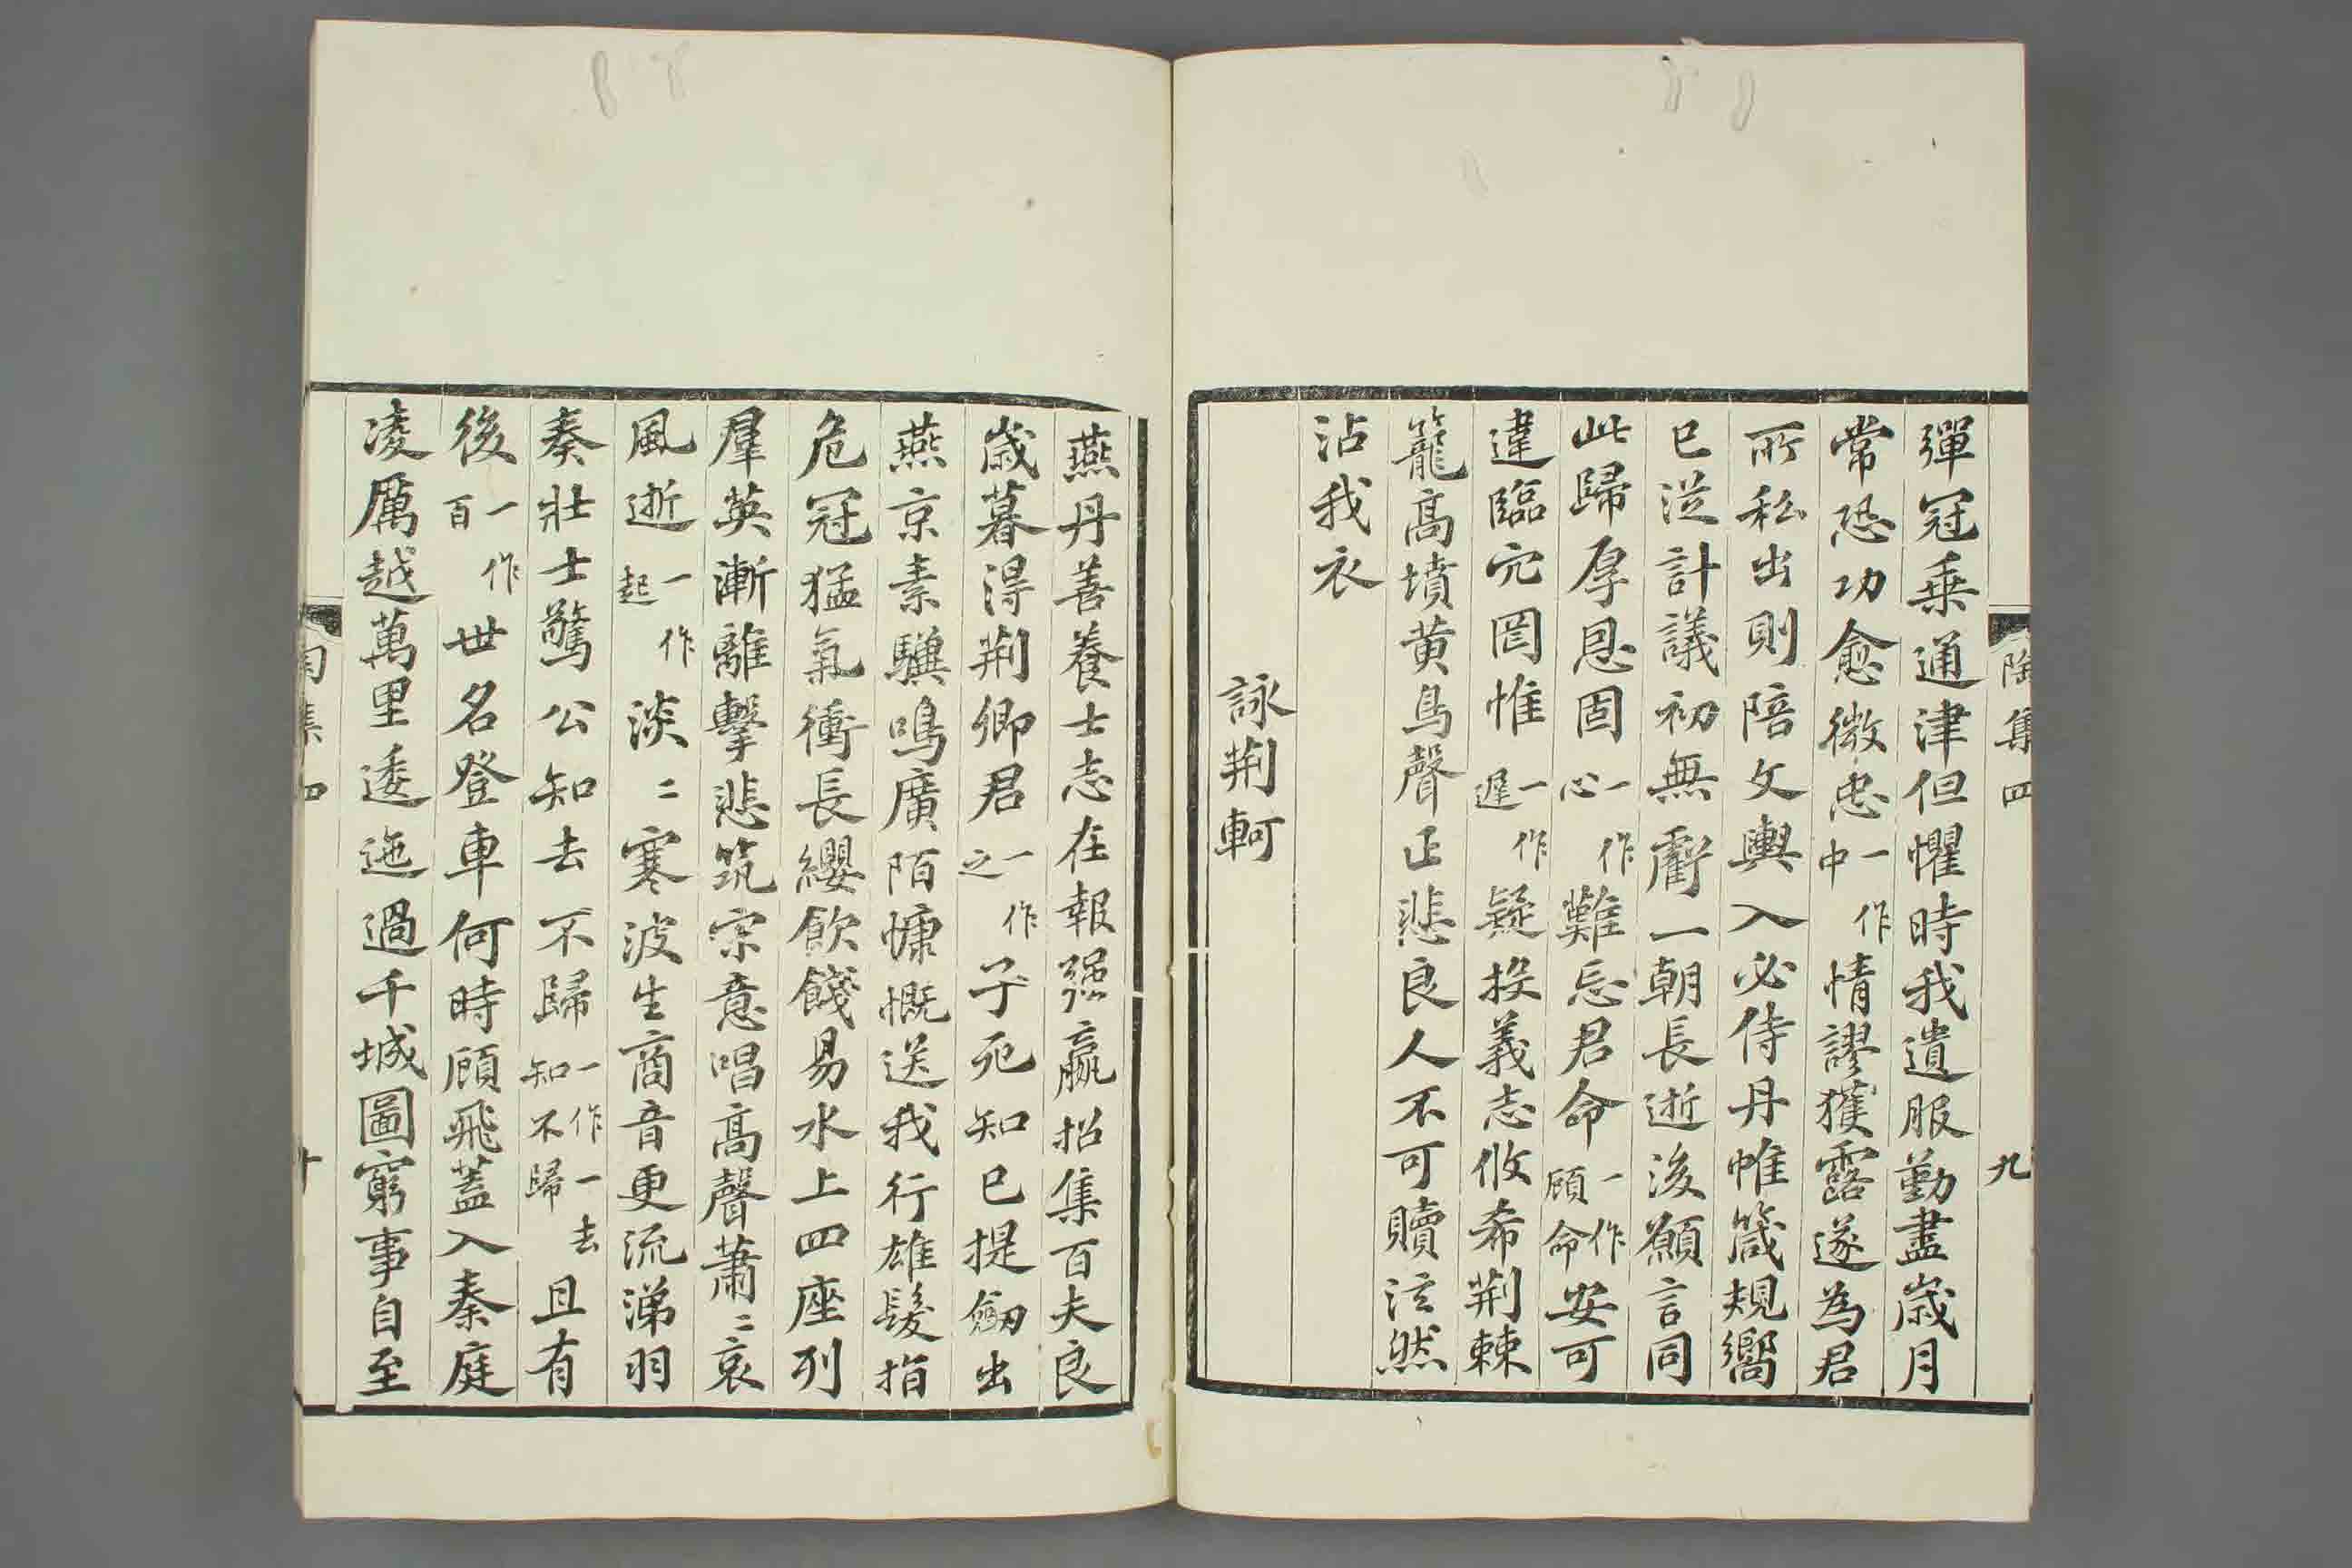 陶集四
九
彈冠乗通津但懼時我遺服勤盡歳月
常恐功愈微忠一作中情謬獲露遂為君
所私出則陪文輿入必侍丹帷箴規嚮
已從計議初無虧一朝長逝後願言同
此歸厚恩固一作心難忘君命一作顧命安可
違臨穴罔惟一作遲疑投義志攸希荆棘
籠高墳黄鳥聲正悲良人不可贖泫然
沾我衣
詠荆軻
燕丹善養士志在報强嬴招集百夫良
歳暮得荆卿君一作之子死知已提劒出
燕京素驥鳴廣陌慷慨送我行雄髮指
危冠猛氣衝長纓飲餞易水上四座列
羣英漸離擊悲筑宗意唱高聲蕭〻哀
風逝一作起淡〻寒波生商音更流涕羽
奏壯士驚公知去不歸一作一去知不歸且有
後一作百世名登車何時顧飛蓋入秦庭
凌厲越萬里逶迤過千城圖窮事自至